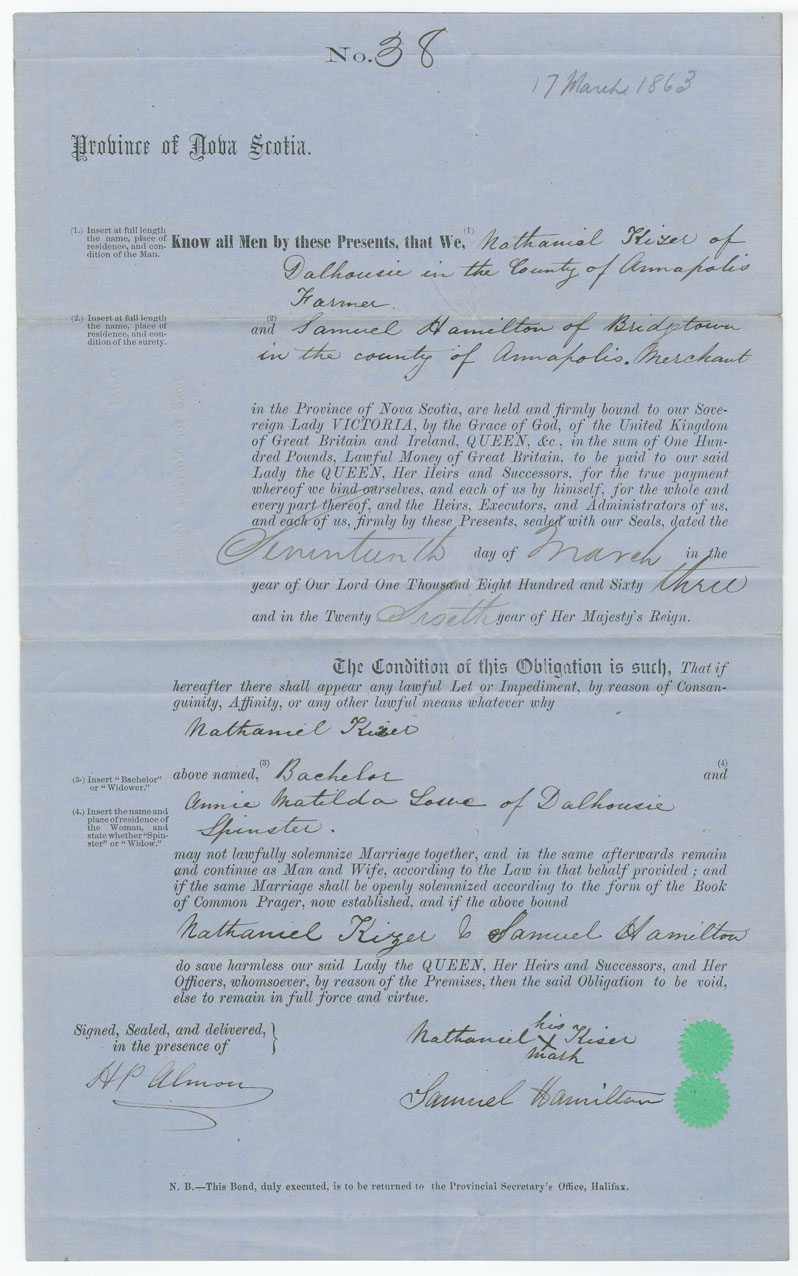 No. 38
17 March 1863
Province of Nova Scotia.
(1.) Insert at full length
the name, place of
residence, and con-
dition of the Man.
Know all Men by these Presents, that We, (1) Nathaniel Kizer of
Dalhousie in the County of Annapolis
Farmer
(2.) Insert at full length
the name, place of
residence, and con-
dition of the surety.
(2)
and Samuel Hamilton of Bridgetown
in the county of Annapolis. Merchant
in the Province of Nova Scotia, are held and firmly bound to our Sove-
reign Lady VICTORIA, by the Grace of God, of the United Kingdom
of Great Britain and Ireland, QUEEN, &c., in the sum of One Hun-
dred Pounds, Lawful Money of Great Britain, to be paid to our said
Lady the QUEEN, Her Heirs and Successors, for the true payment
whereof we bind ourselves, and each of us by himself, for the whole and
every part thereof, and the Heirs, Executors, and Administrators of us,
and each of us, firmly by these Presents, sealed with our Seals, dated the
Seventeenth day of March in the
year of Our Lord One Thousand Eight Hundred and Sixty three
and in the Twenty Sixth year of Her Majesty's Reign.
The Condition of this Obligation is such, That if
hereafter there shall appear any lawful Let or Impediment, by reason of Consan-
guinity, Affinity, or any other lawful means whatever why
Nathaniel Kizer
(3.) Insert "Bachelor"
or "Widower."
above named, (3) Bachelor (4) and
(4.) Insert the name and
place of residence of
the Woman, and
state whether "Spin-
ster" or "Widow."
Annie Matilda Lowe of Dalhousie
Spinster.
may not lawfully solemnize Marriage together, and in the same afterwards remain
and continue as Man and Wife, according to the Law in that behalf provided ; and
if the same Marriage shall be openly solemnized according to the form of the Book
of Common Prager, now established, and if the above bound
Nathaniel Kizer & Samuel Hamilton
do save harmless our said Lady the QUEEN, Her Heirs and Successors, and Her
Officers, whomsoever, by reason of the Premises, then the said Obligation to be void,
else to remain in full force and virtue.
Signed, Sealed, and delivered,
in the presence of
HP Almon
Nathaniel his X mark Kiser
Samuel Hamilton
N. B.—This Bond, duly executed, is to be returned to the Provincial Secretary's Office, Halifax.